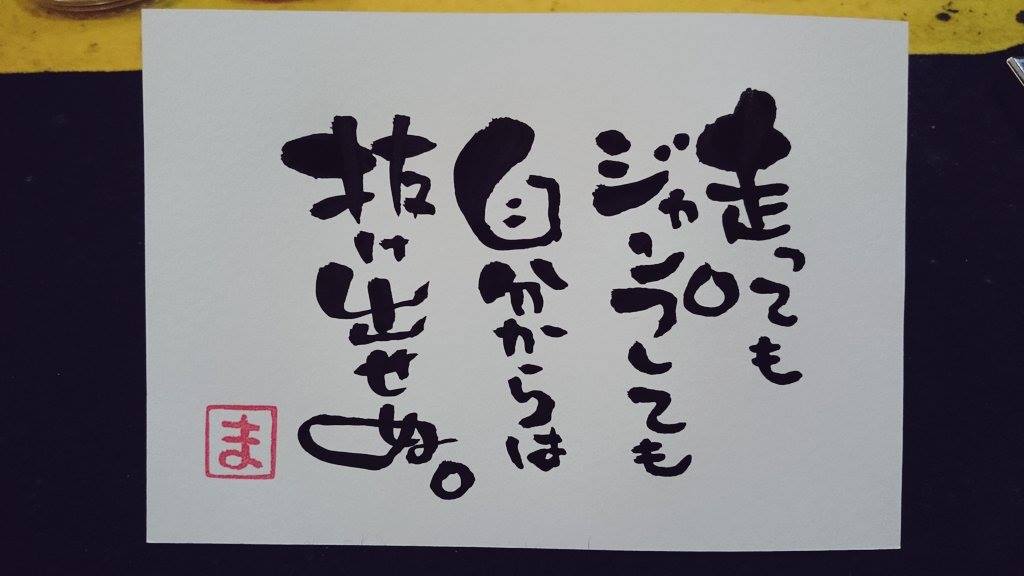 走っても
ジャンプしても
自分からは
抜け出せぬ。
ま